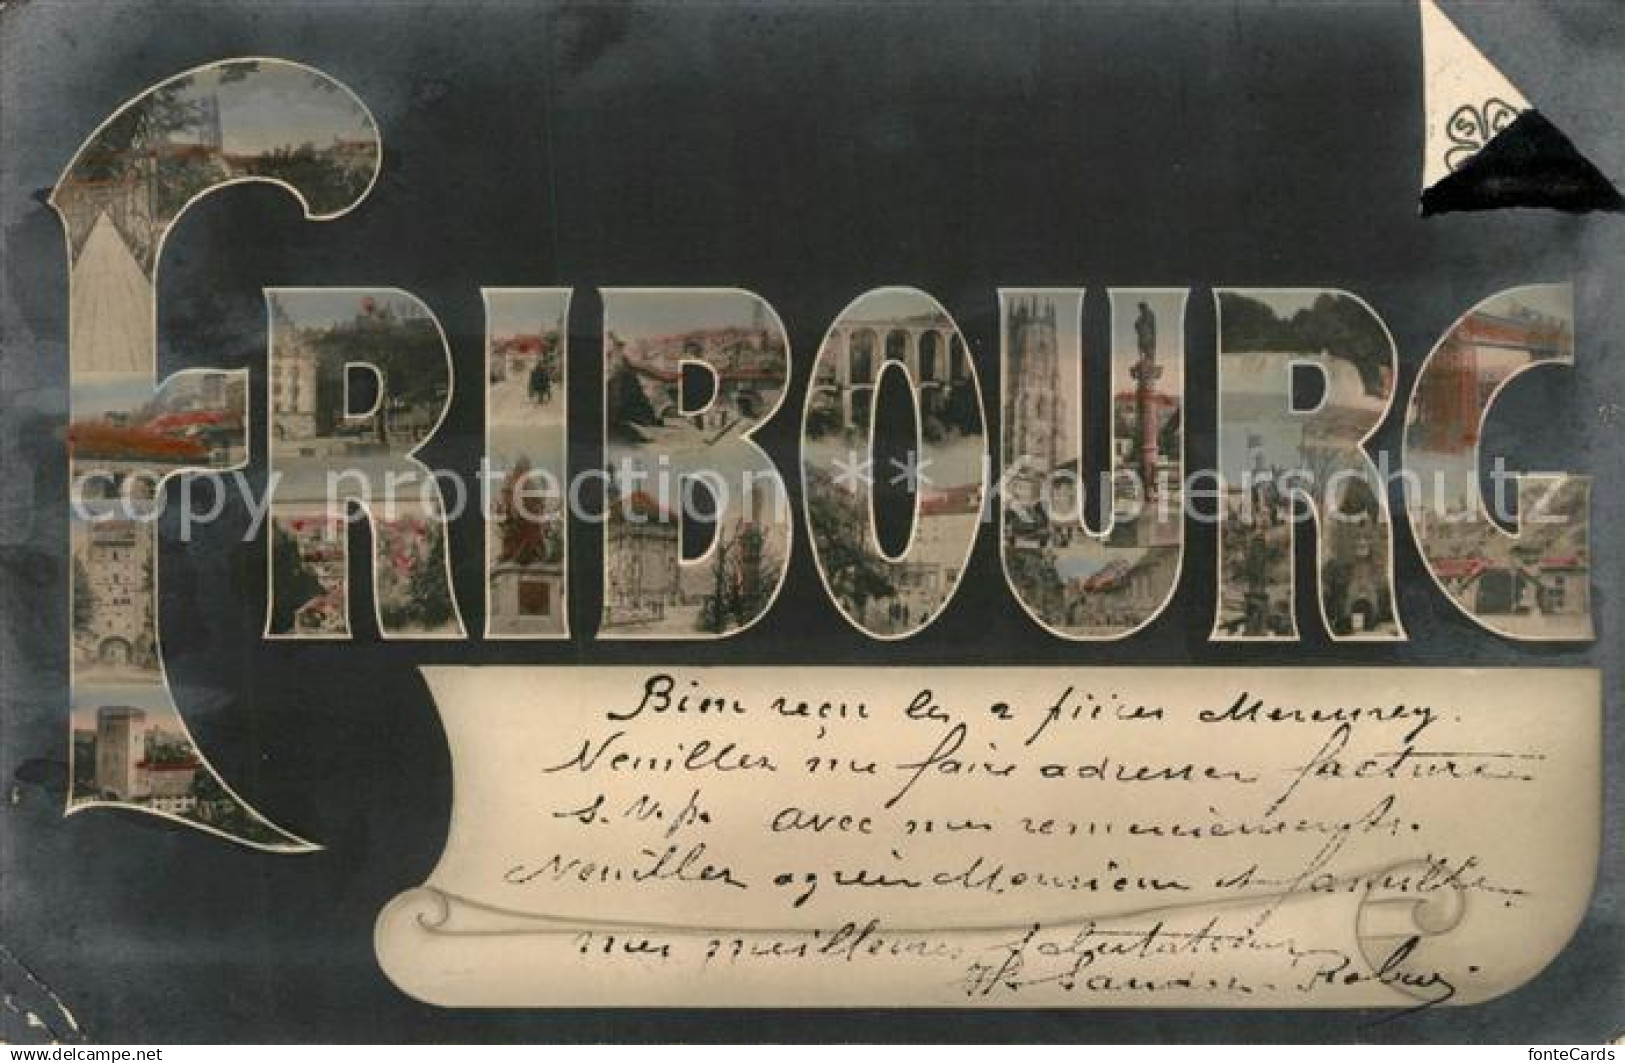 FRIBOURG
S C
copy protection ** Kopierschutz
Bien reçu les 2 pièces Mercurey.
Veuillez me faire adresser facture
s.v.p. avec mes remerciements.
Veuillez agréer Monsieur et famille
mes meilleures salutations
DELCAMPE.LUXE
fonteCards